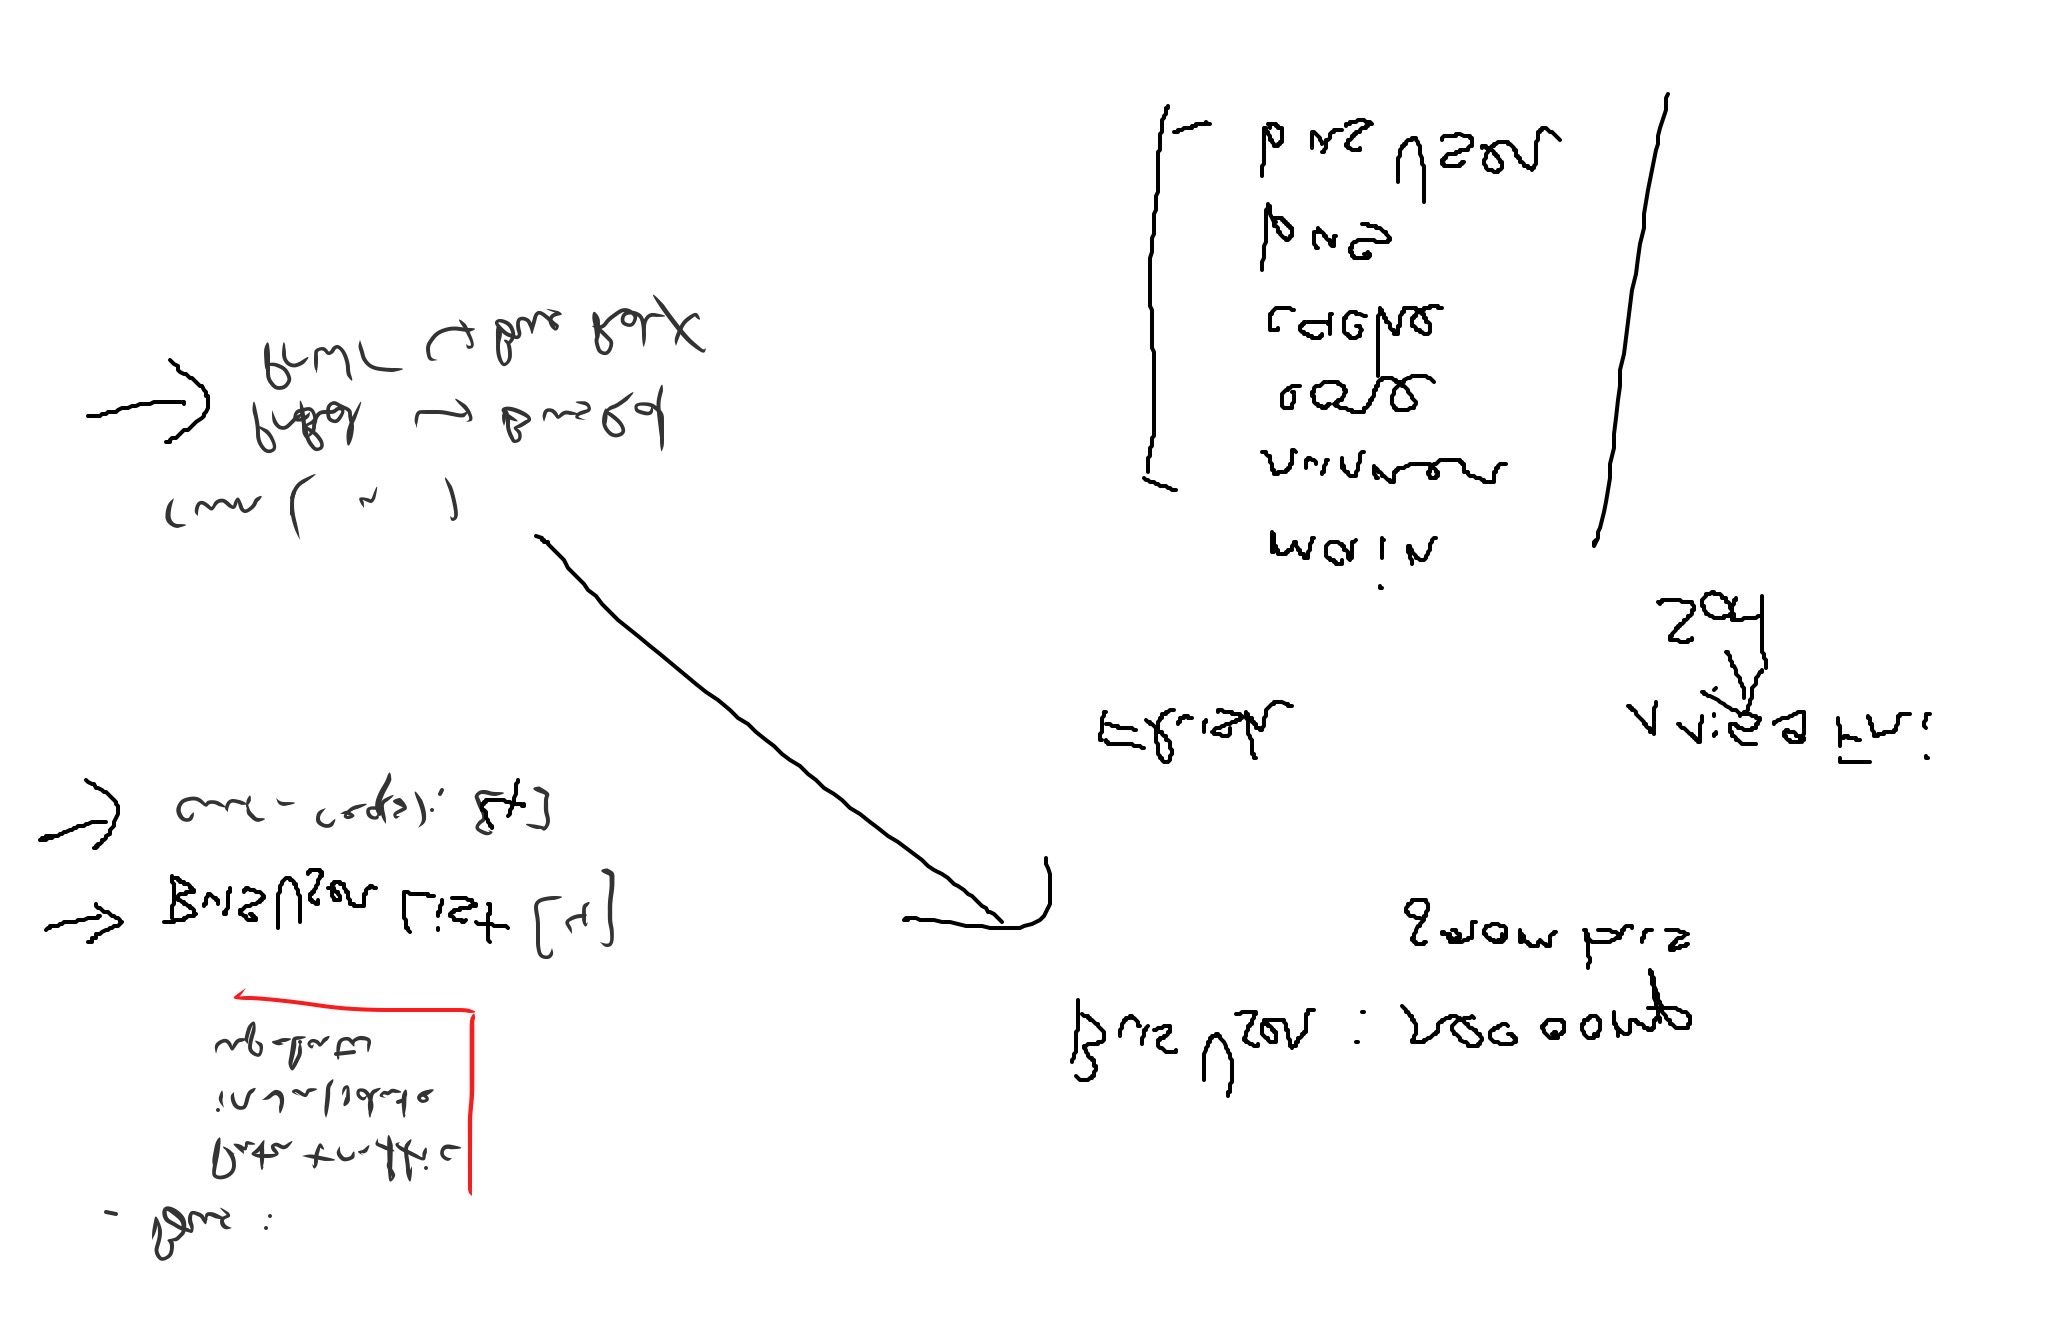 - Bus :
Data traffic
invalidate
update
BusUser List [4]
cur_reqs): [4]
run ( )
PrRd → BusRd
PrWr ↪ Bus RdX
Bus User : rec comp
from bus
Flush
11:59 Fri
Sat
main
runner
core
cache
bus
bus User